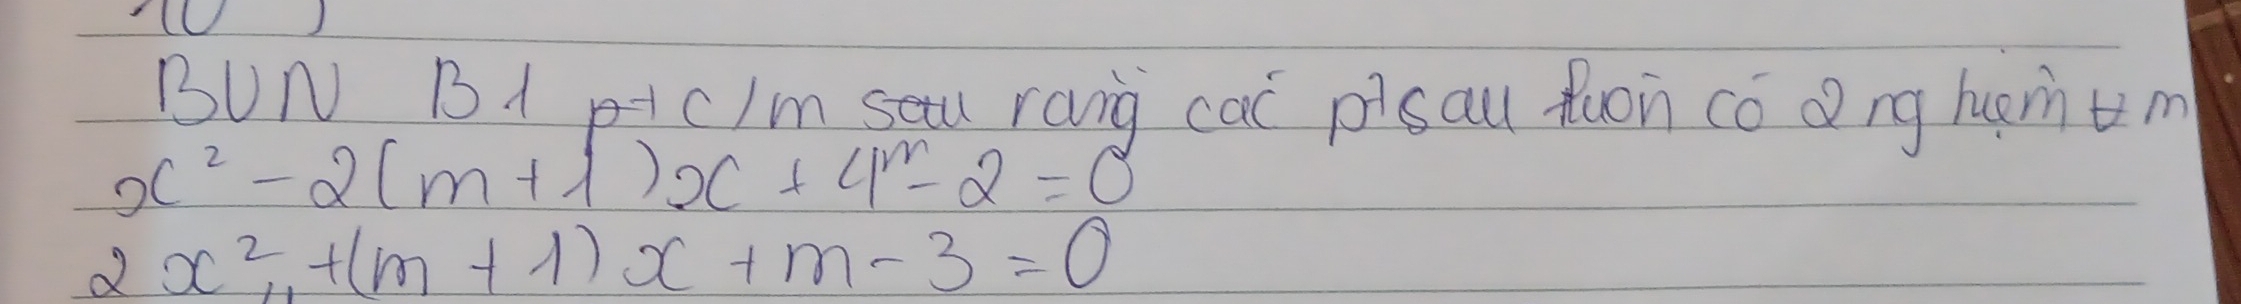 BUN B1 pt c/m sau rằng các pt sau luôn có 2 nghiệm ∀ m
x² - 2(m+1)x + 4m - 2 = 0
2x² + (m+1)x + m - 3 = 0